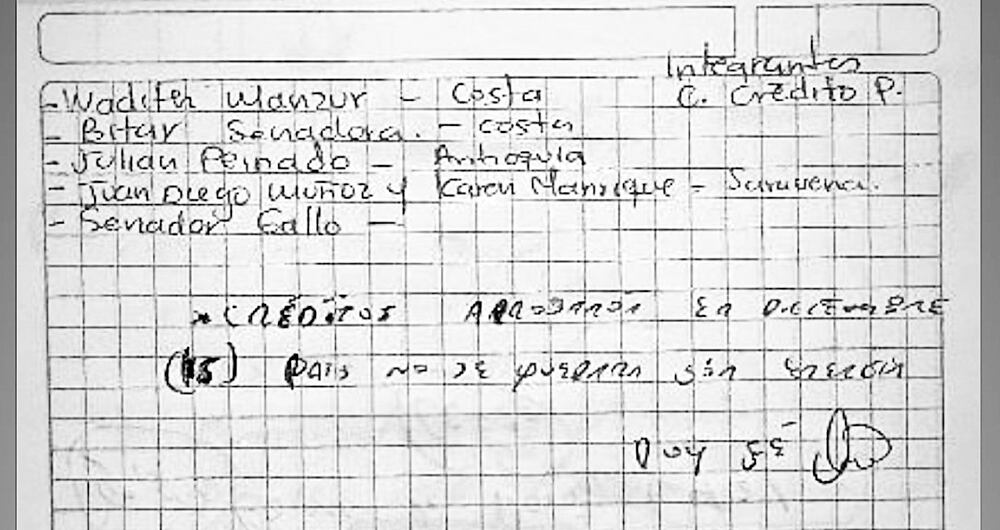 Integrantes
C. Crédito P.
- Wadith Manzur - Costa
- Bitar Senadora. - costa
- Julian Peinado - Antioquia
- Juan Diego Muñoz y Karen Manrique - Saravena.
- Senador Gallo -
* CRÉDITOS APROBADOS EN DICIEMBRE
(15) PAIS NO SE QUEDARA SIN
DOY FÉ